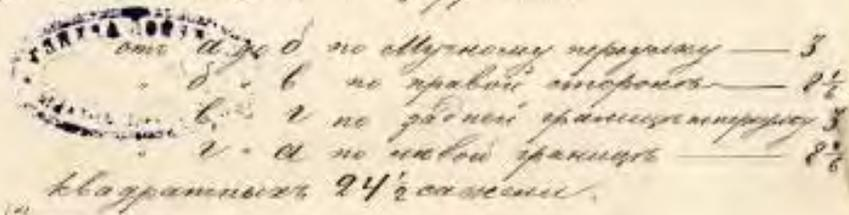 отъ а до б по Мучному переулку — 3
" б " в по правой стороне — 8 1/6
" в " г по задней границѣ 3
" г " а по левой границѣ — 8 1/6
Квадратныхъ 24 1/2 сажени.